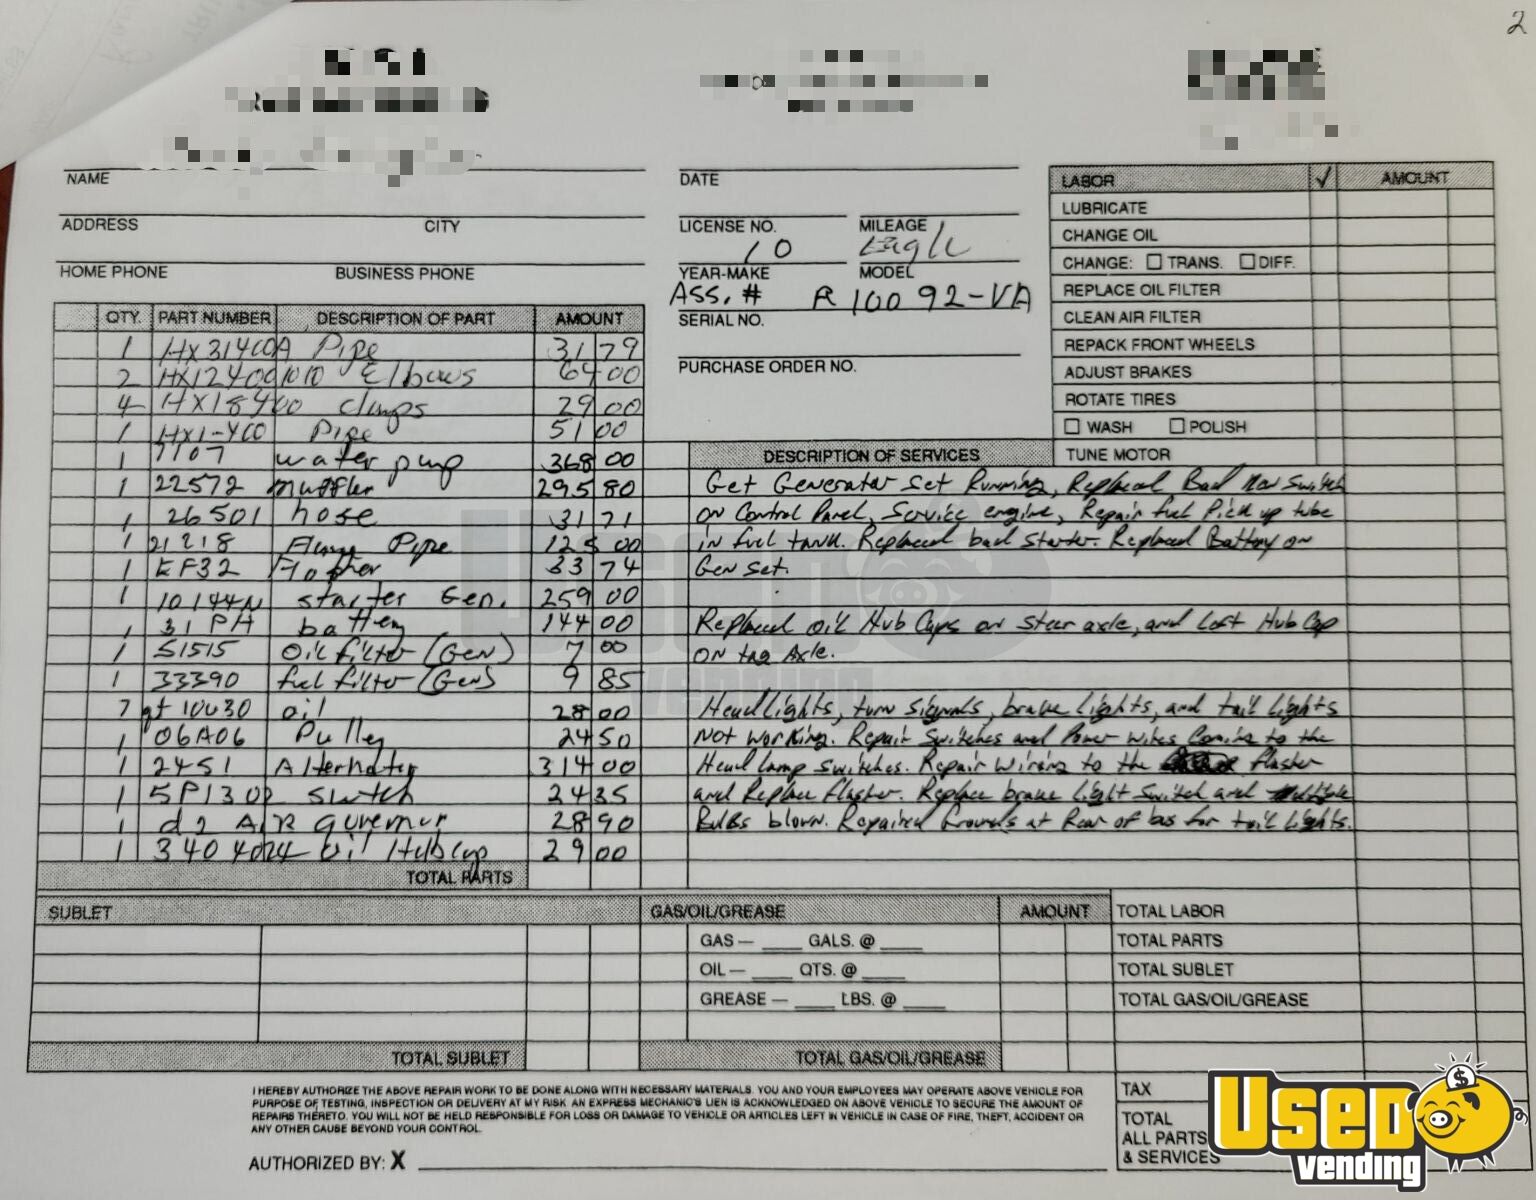 2
NAME
DATE
ADDRESS CITY
LICENSE NO. MILEAGE
10 Eagle
HOME PHONE BUSINESS PHONE
YEAR-MAKE MODEL
ASS. # R 10092-VA
SERIAL NO.
PURCHASE ORDER NO.
LABOR ✓ AMOUNT
LUBRICATE
CHANGE OIL
CHANGE: ☐ TRANS. ☐ DIFF.
REPLACE OIL FILTER
CLEAN AIR FILTER
REPACK FRONT WHEELS
ADJUST BRAKES
ROTATE TIRES
☐ WASH ☐ POLISH
TUNE MOTOR
QTY. PART NUMBER DESCRIPTION OF PART AMOUNT
1 HX31400A Pipe 31 79
2 HX124001010 Elbows 64 00
4 HX18400 clamps 29 00
1 HX1-400 Pipe 51 00
1 7107 water pump 368 00
1 22572 muffler 295 80
1 26501 hose 31 71
1 21218 Pipe 125 00
1 EF32 33 74
1 10144N starter Gen. 259 00
1 31 PH battery 144 00
1 51515 Oil filter (Gen) 7 00
1 33390 fuel filter (Gen) 9 85
7 qt 10w30 oil 28 00
1 06A06 Pulley 24 50
1 2451 Alternater 314 00
1 SP1302 switch 24 35
1 d2 Air guvernur 28 90
1 3404024 oil Hubcap 29 00
TOTAL PARTS
DESCRIPTION OF SERVICES
Get Generator set Running, Replaced Bad switch
on Control Panel, Service engine, Repair fuel Pick up tube
in fuel tank. Replaced bad starter. Replaced Battery on
Gen set.
Replaced oil Hub Caps on stear axle, and Lost Hub Cap
on tag Axle.
Headlights, turn signals, brake lights, and tail lights
Not working. Repair switches and Power wires Coming to the
Head lamp switches. Repair wiring to the flasher
and Replace flasher. Replace brake light switch and multiple
Bulbs blown. Repaired Grounds at Rear of bus for tail lights.
SUBLET
TOTAL SUBLET
GAS/OIL/GREASE AMOUNT
GAS — ____ GALS. @ ____
OIL — ____ QTS. @ ____
GREASE — ____ LBS. @ ____
TOTAL GAS/OIL/GREASE
TOTAL LABOR
TOTAL PARTS
TOTAL SUBLET
TOTAL GAS/OIL/GREASE
TAX
TOTAL
ALL PARTS
& SERVICES
I HEREBY AUTHORIZE THE ABOVE REPAIR WORK TO BE DONE ALONG WITH NECESSARY MATERIALS. YOU AND YOUR EMPLOYEES MAY OPERATE ABOVE VEHICLE FOR
PURPOSE OF TESTING, INSPECTION OR DELIVERY AT MY RISK. AN EXPRESS MECHANIC'S LIEN IS ACKNOWLEDGED ON ABOVE VEHICLE TO SECURE THE AMOUNT OF
REPAIRS THERETO. YOU WILL NOT BE HELD RESPONSIBLE FOR LOSS OR DAMAGE TO VEHICLE OR ARTICLES LEFT IN VEHICLE IN CASE OF FIRE, THEFT, ACCIDENT OR
ANY OTHER CAUSE BEYOND YOUR CONTROL.
AUTHORIZED BY: X
USED
vending